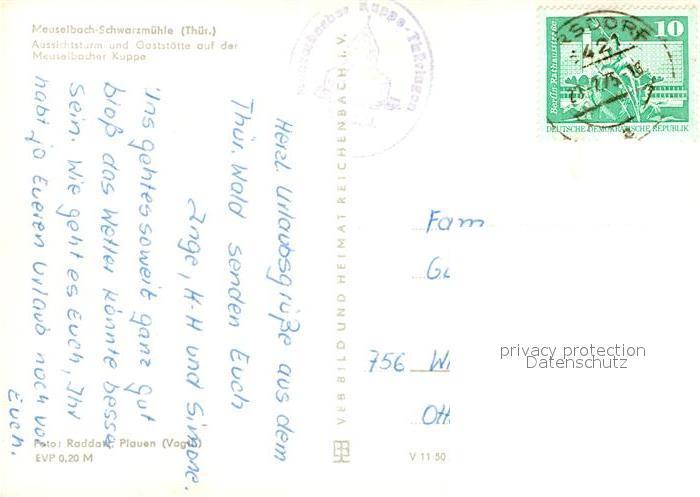 Meuselbach-Schwarzmühle (Thür.)
Aussichtsturm und Gaststätte auf der
Meuselbacher Kuppe
Herzl. Urlaubsgrüße aus dem
Thür. Wald senden Euch
Inge, K-H und Simone.
Uns geht es soweit ganz gut
bloß das Wetter könnte besser
sein. Wie geht es Euch, Ihr
habt ja Eueren Urlaub noch vor
Euch.
Foto: Raddatz, Plauen (Vogtl)
EVP 0,20 M
VEB BILD UND HEIMAT REICHENBACH i.V.
V 11 50
Meuselbacher Kuppe-Thüringen
Berlin-Rathausstraße
10
DEUTSCHE DEMOKRATISCHE REPUBLIK
6421
Fam
756 Wi
Ott
privacy protection
Datenschutz